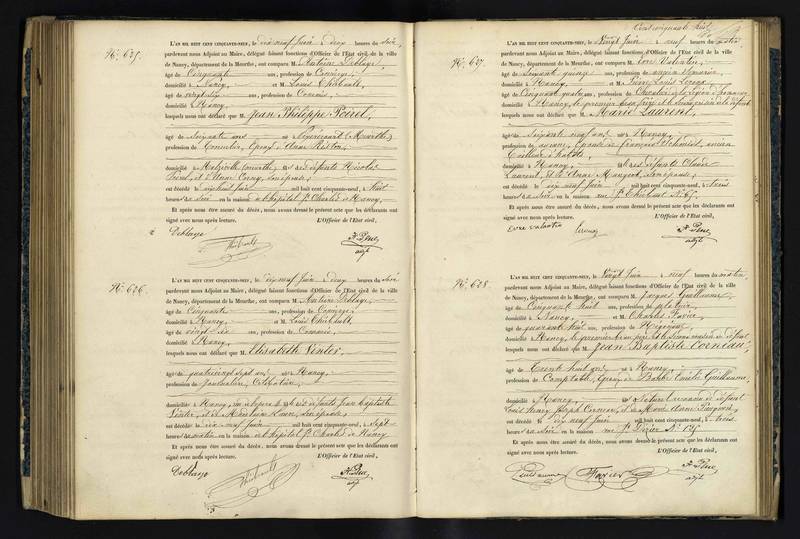 Nº. 625.
L'AN MIL HUIT CENT CINQUANTE-NEUF, le dix neuf Juin à deux heures du soir,
pardevant nous Adjoint au Maire, délégué faisant fonctions d'Officier de l'Etat civil de la ville
de Nancy, département de la Meurthe, ont comparu M. Antoine Deblaye,
âgé de Cinquante ans, profession de Concierge,
domicilié à Nancy, et M. Louis Thiébault,
âgé de vingt six ans, profession de Commis,
domicilié à Nancy,
lesquels nous ont déclaré que M. Jean Philippe Poirel,
âgé de soixante ans né à (Meurthe)
profession de époux d'Anne
domicilié à (Meurthe) fils des défunts Nicolas
Poirel, et d'Anne son épouse,
est décédé le dix huit Juin mil huit cent cinquante-neuf, à huit
heures du soir en la maison et hôpital St. Charles de Nancy.
Et après nous être assuré du décès, nous avons dressé le présent acte que les déclarants ont
signé avec nous après lecture. L'Officier de l'Etat civil,
Deblaye
Thiébault
adjt
Nº. 626.
L'AN MIL HUIT CENT CINQUANTE-NEUF, le dix neuf Juin à deux heures du soir
pardevant nous Adjoint au Maire, délégué faisant fonctions d'Officier de l'Etat civil de la ville
de Nancy, département de la Meurthe, ont comparu M. Antoine Deblaye,
âgé de Cinquante ans, profession de Concierge,
domicilié à Nancy, et M. Louis Thiébault,
âgé de vingt six ans, profession de Commis,
domicilié à Nancy,
lesquels nous ont déclaré que M. Elisabeth
âgé de quatre vingt sept ans née à Nancy,
profession de journalière, Célibataire,
domicilié à Nancy, fille des défunts Jean Baptiste
et de son épouse,
est décédé le dix neuf Juin mil huit cent cinquante-neuf, à sept
heures du matin en la maison et hôpital St. Charles de Nancy
Et après nous être assuré du décès, nous avons dressé le présent acte que les déclarants ont
signé avec nous après lecture. L'Officier de l'Etat civil,
Deblaye
Thiébault
adjt
Cent cinquante huit
Nº. 627.
L'AN MIL HUIT CENT CINQUANTE-NEUF, le Vingt Juin à neuf heures du matin
pardevant nous Adjoint au Maire, délégué faisant fonctions d'Officier de l'Etat civil de la ville
de Nancy, département de la Meurthe, ont comparu M. Evre Valentin,
âgé de soixante quinze ans, profession de ancien
domicilié à Nancy, et M. Pierre Louis Leroux,
âgé de Cinquante quatre ans, profession de Chevalier de la légion d'honneur,
domicilié à Nancy, le premier beau frère et le second voisin de la défunte
lesquels nous ont déclaré que M. Marie Laurent,
âgé de soixante neuf ans née à Nancy,
profession de épouse de François Schmidt, ancien
tailleur d'habits,
domicilié à Nancy, fille des défunts Claude
Laurent, et de Anne son épouse,
est décédé le dix neuf Juin mil huit cent cinquante-neuf, à trois
heures du soir en la maison rue St. Thiébaut
Et après nous être assuré du décès, nous avons dressé le présent acte que les déclarants ont
signé avec nous après lecture. L'Officier de l'Etat civil,
Evre Valentin
Leroux
adjt
Nº. 628.
L'AN MIL HUIT CENT CINQUANTE-NEUF, le Vingt Juin à neuf heures du matin,
pardevant nous Adjoint au Maire, délégué faisant fonctions d'Officier de l'Etat civil de la ville
de Nancy, département de la Meurthe, ont comparu M. Jacques Guillaume,
âgé de Cinquante huit ans, profession de
domicilié à Nancy, et M. Charles
âgé de quarante huit ans, profession de Négociant,
domicilié à Nancy, le premier beau père et le second cousin du défunt
lesquels nous ont déclaré que M. Jean Baptiste Corneau,
âgé de Trente huit ans né à Nancy,
profession de Comptable, époux de Barbe Emilie Guillaume,
domicilié à Nancy,
Louis Corneau, et de Marie Anne
est décédé le dix neuf Juin mil huit cent cinquante-neuf, à trois
heures du soir en la maison rue St. Dizier
Et après nous être assuré du décès, nous avons dressé le présent acte que les déclarants ont
signé avec nous après lecture. L'Officier de l'Etat civil,
Guillaume
adjt